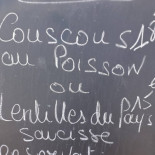 Couscous 18
au Poisson
ou
Lentilles du Pays 15
saucisse